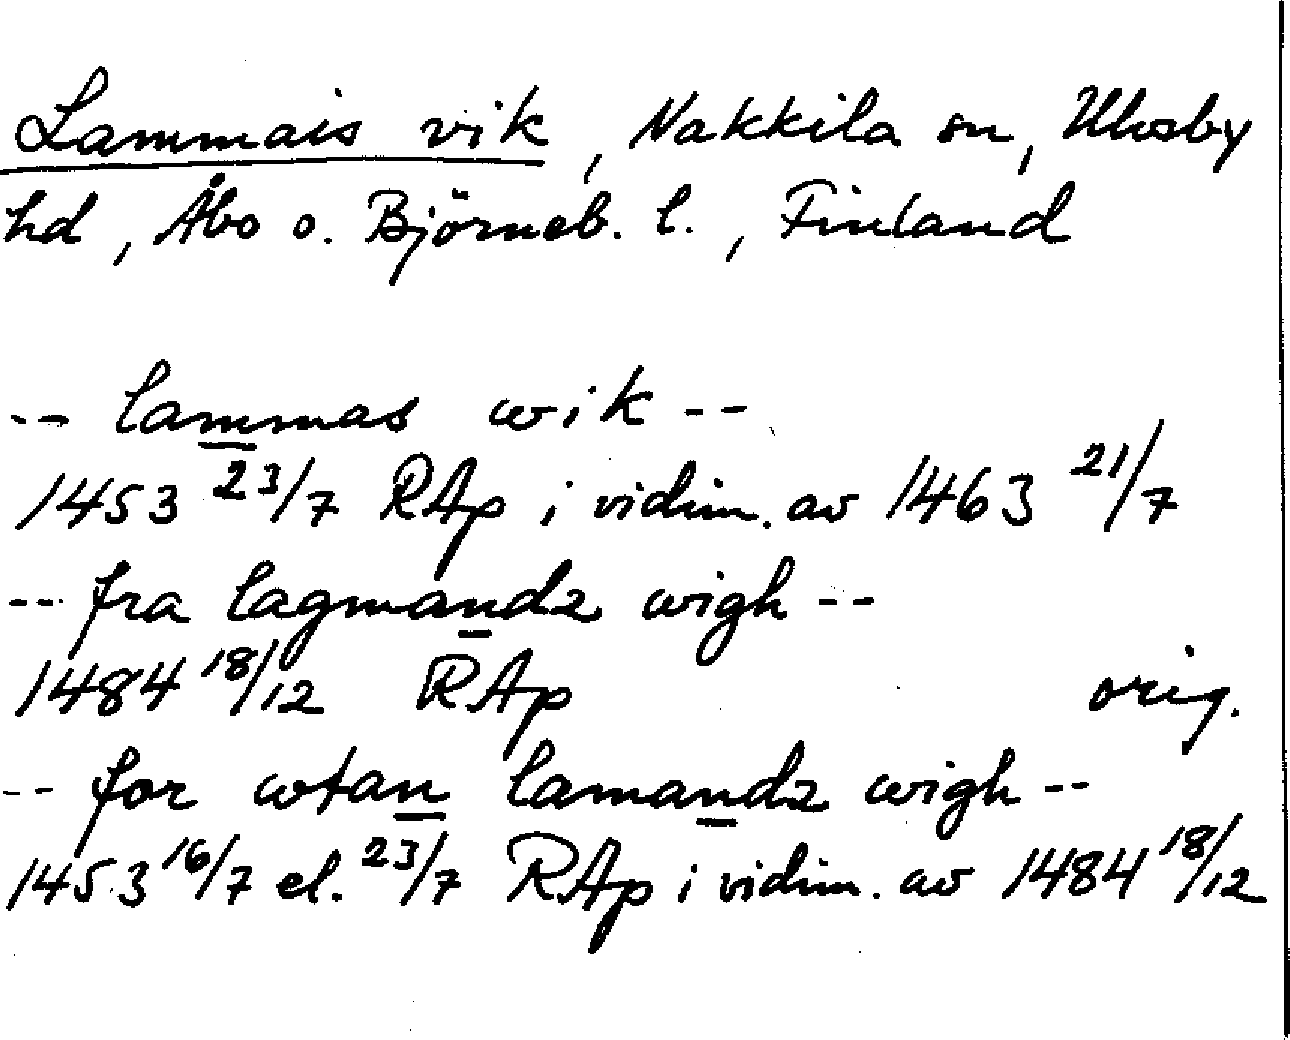 Lammais vik, Nakkila sn, Ulvsby
hd, Åbo o. Björneb. l., Finland
-- lammas wik --
1453 23/7 RAp i vidim. av 1463 21/7
-- fra lagmandz wigh --
1484 18/12 RAp orig.
-- for wtan lamandz wigh --
1453 16/7 el. 23/7 RAp i vidim. av 1484 18/12